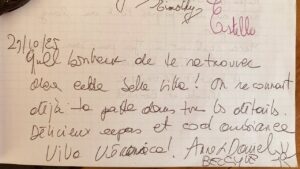 Timothy
Estelle
29/10/25
Quel bonheur de te retrouver
dans cette belle villa ! On reconnait
déjà ta patte dans tous les détails.
Délicieux repas et cool ambiance
Viva Véronica ! Anne & Daniel